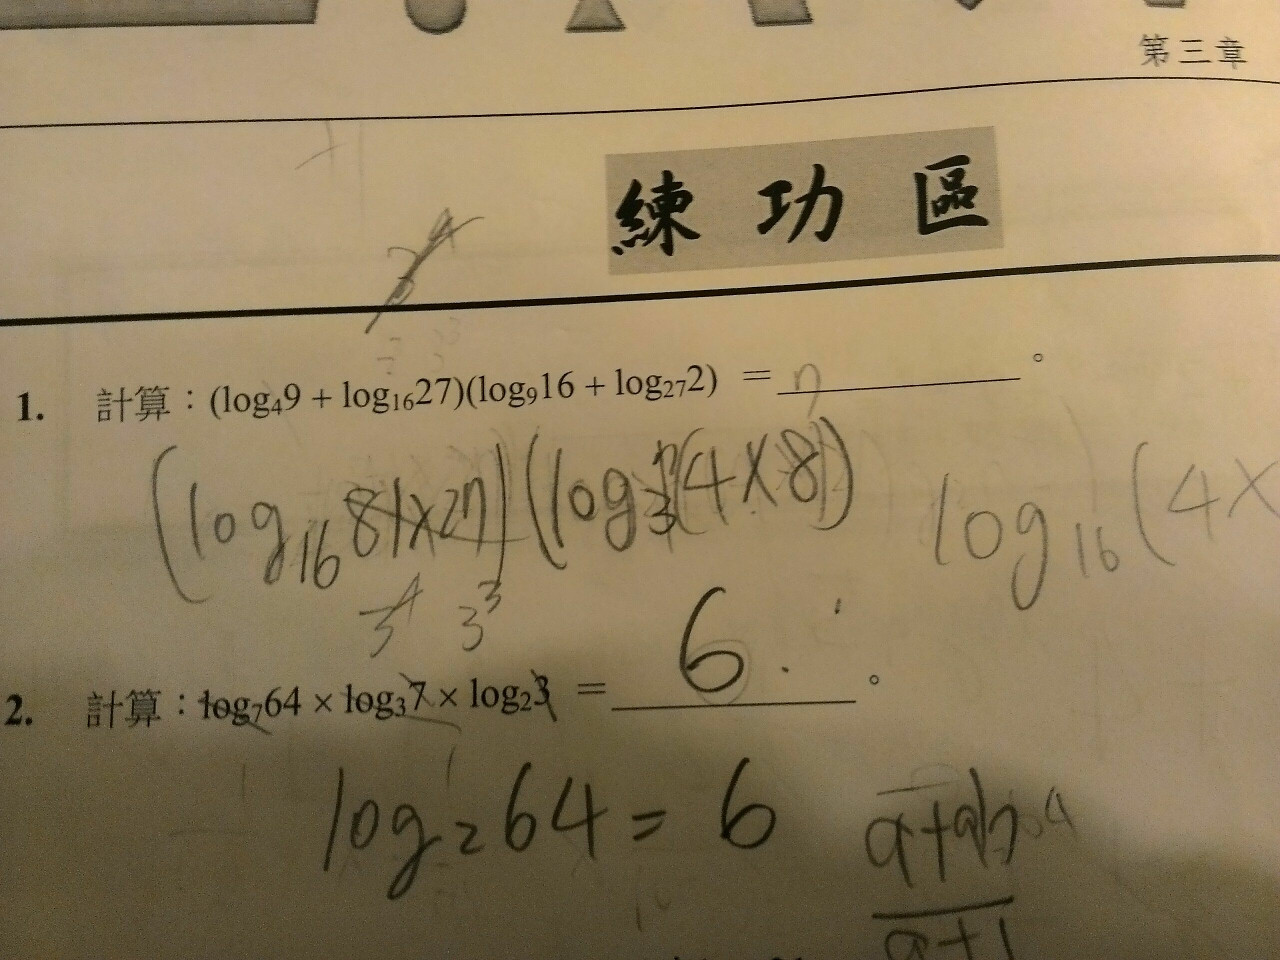 第三章
練功區
1. 計算：(log₄9 + log₁₆27)(log₉16 + log₂₇2) = ______。
(log₁₆ 81×27)(log₃(4×8))
log₁₆(4×
3⁴ 3³
6.
2. 計算：log₇64 × log₃7 × log₂3 = ______。
log₂64 = 6
a+1